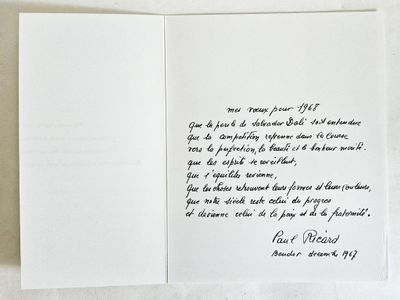 mes vœux pour 1968
que la parole de Salvador Dali soit entendue
que la compétition reprenne dans la course
vers la perfection, la beauté et le bonheur mérité.
que les esprits se réveillent,
que l'équilibre revienne,
que les choses retrouvent leurs formes et leurs couleurs,
que notre siècle reste celui du progrès
et devienne celui de la paix et de la fraternité.
Paul Ricard
Bendor décembre 1967